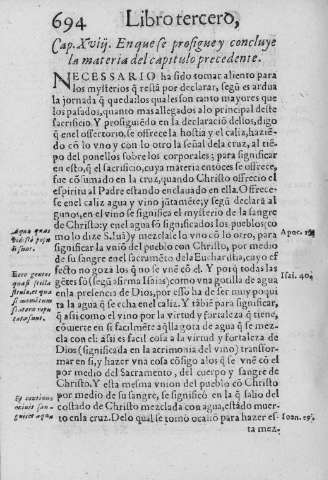 694 Libro tercero,
Cap. Xviij. En que se prosigue y concluye
la materia del capitulo precedente.
NECESSARIO ha sido tomar aliento para
los mysterios q̃ restã por declarar, segũ es ardua
la jornada q̃ queda: los quales son tanto mayores que
los pasados, quanto mas allegados a lo principal deste
sacrificio. Y prosiguẽdo en la declaraciõ dellos, digo
q̃ en el offertorio, se offrece la hostia y el caliz, haziẽ-
do cõ lo vno y con lo otro la señal dela cruz, al tiẽ-
po del ponellos sobre los corporales; para significar
en esto, q̃ el sacrificio, cuya materia entõces se offrece,
fue cõsumado en la cruz, quando Christo offrecio el
espiritu al Padre estando enclauado en ella. Ofrece-
se en el caliz agua y vino jũtamẽte; y segũ declarã al
gunos, en el vino se significa el mysterio de la sangre
de Christo: y en el agua sõ significados los pueblos; co
mo lo dize S. Iuã) y mezclase lo vno cõ lo otro, para
significar la vniõ del pueblo con Christo, por medio
de su sangre en el sacramẽto dela Eucharistia, cuyo ef
fecto no gozã los q̃ no se vnẽ cõ el. Y porq̃ todas las
gẽtes sõ (segũ afirma Isaias) como vna gotilla de agua
en la presencia de Dios, por esso ha de ser muy poqui
ta la agua q̃ se echa en el caliz. Y tãbiẽ para significar,
q̃ assi como el vino por la virtud y fortaleza q̃ tiene,
cõuierte en si facilmẽte aq̃lla gota de agua q̃ se mez-
cla con el: assi es facil cosa a la virtud y fortaleza de
Dios (significada en la acrimonia del vino) transfor-
mar en si, y hazer vna cosa cõsigo a los q̃ se vnẽ cõ el
por medio del Sacramento, del cuerpo y sangre de
Christo. Y esta mesma vnion del pueblo cõ Christo
por medio de su sangre, se significò en la q̃ salio del
costado de Christo mezclada con agua, estãdo muer-
to en la cruz. De lo qual se tomò ocasiõ para hazer es-
ta mez-
Aquæ quas
vidisti popu
li sunt.
Ecce gentes
quasi stilla
situlæ, et qua
si momentum
Et continuo
exiuit san-
guis et aqua
Isai. 40.